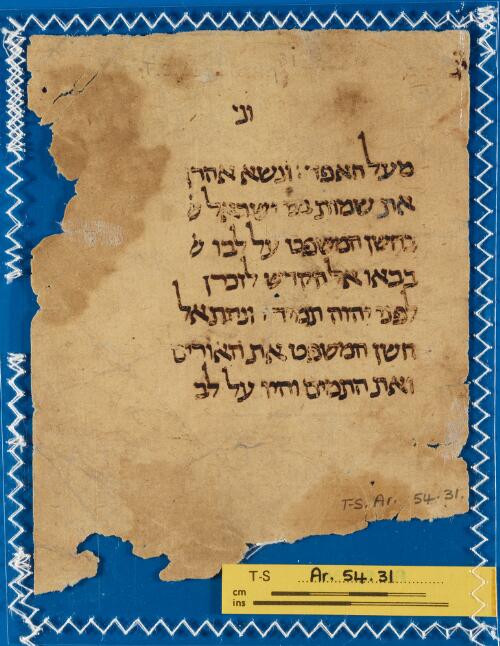 וני
מעל האפד : ונשא אהרן
את שמות בני ישראל ע
בחשן המשפט על לבו ע
בבאו אל הקדש לזכרן
לפני יהוה תמיד : ונתת אל
חשן המשפט את האורים
ואת התמים והיו על לב
T-S. Ar. 54.31.
T-S Ar. 54.31
cm
ins